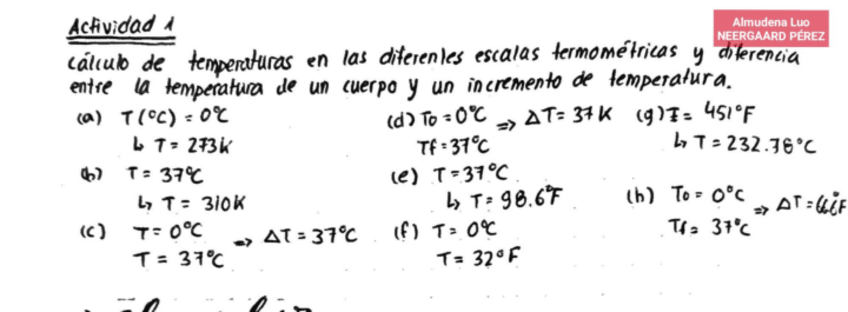 Actividad 1
Almudena Luo
NEERGAARD PÉREZ
cálculo de temperaturas en las diferentes escalas termométricas y diferencia
entre la temperatura de un cuerpo y un incremento de temperatura.
(a) T(ºC) = 0ºC
↳ T = 273K
(b) T = 37ºC
↳ T = 310K
(c) T = 0ºC
T = 37ºC => ΔT = 37ºC
(d) To = 0ºC
Tf = 37ºC => ΔT = 37K
(e) T = 37ºC
↳ T = 98.6ºF
(f) T = 0ºC
T = 32ºF
(g) T = 451ºF
↳ T = 232.78ºC
(h) To = 0ºC
Tf = 37ºC => ΔT =